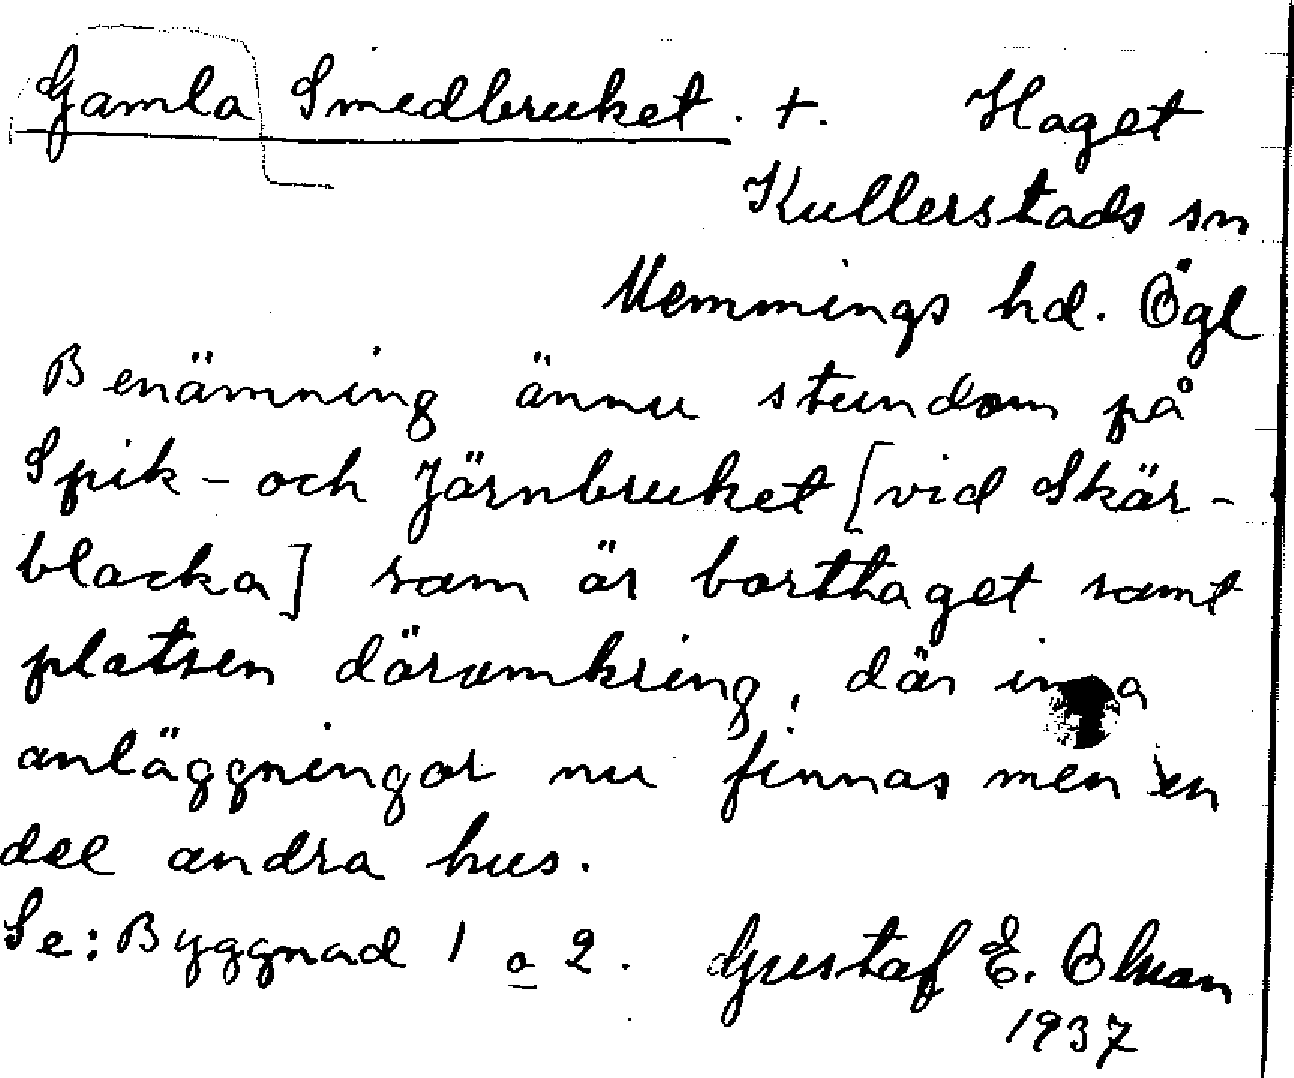 Gamla Smedbruket. +. Haget
Kullerstads sn
Memmings hd. Ögl
Benämning ännu stundom på
Spik- och Järnbruket [vid Skär-
blacka] som är borttaget samt
platsen däromkring, där inga
anläggningar nu finnas men en
del andra hus.
Se: Byggnad 1 o 2. Gustaf E. Olson
1937